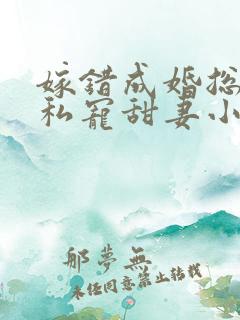 嫁错成婚总
私宠甜妻小
那夢無
未经同意禁止转载